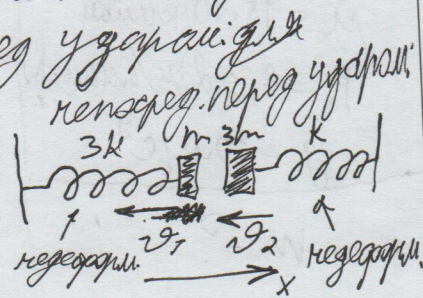 ед ударом: для
непосред. перед ударом:
3k m 3m k
v₁ v₂
недеформ. недеформ.
x